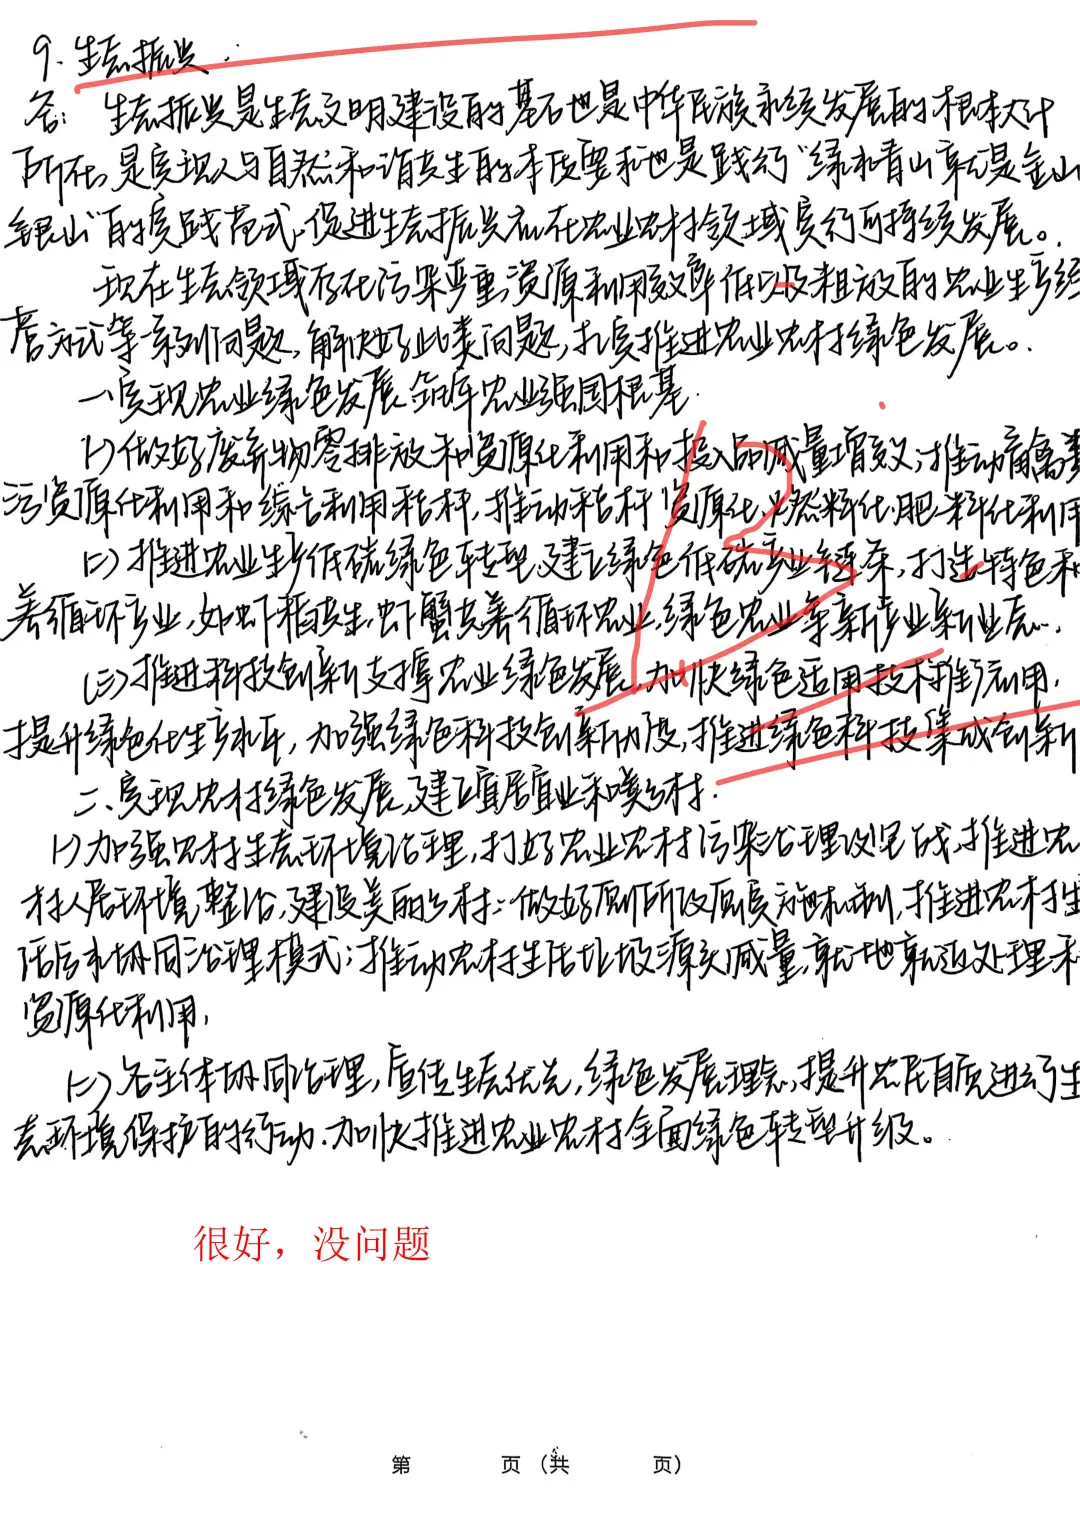 9. 生态振兴:
答: 生态振兴是生态文明建设的基石也是中华民族永续发展的根本大计
所在, 是实现人与自然和谐共生的本质要求也是践行“绿水青山就是金山
银山”的实践范式, 促进生态振兴应在农业农村领域实行可持续发展。
现在生态领域存在污染严重, 资源利用效率低以及粗放的农业生产经
营方式等一系列问题, 解决好此类问题, 扎实推进农业农村绿色发展。
一、实现农业绿色发展, 筑牢农业强国根基.
(一)做好废弃物零排放和资源化利用和投入品减量增效; 推动畜禽粪
污资源化利用和综合利用秸秆, 推动秸秆资源化、燃料化、肥料化利用
(二)推进农业生产低碳绿色转型, 建立绿色低碳产业链条, 打造特色和
养循环产业, 如虾稻共生, 虾蟹共养循环农业, 绿色农业等新产业新业态.
(三)推进科技创新支撑农业绿色发展, 加快绿色适用技术推广应用,
提升绿色化生产水平, 加强绿色科技创新力度, 推进绿色科技集成创新
二、实现农村绿色发展, 建设宜居宜业和美乡村.
(一)加强农村生态环境治理, 打好农业农村污染治理攻坚战, 推进农
村人居环境整治, 建设美丽乡村: 做好厕所改厕实施机制, 推进农村生
活污水协同治理模式; 推动农村生活垃圾源头减量, 就地就近处理和
资源化利用,
(二)各主体协同治理, 宣传生态优先, 绿色发展理念, 提升农民自觉进行生
态环境保护的行动. 加快推进农业农村全面绿色转型升级。
B
很好，没问题
第 页（共 页）